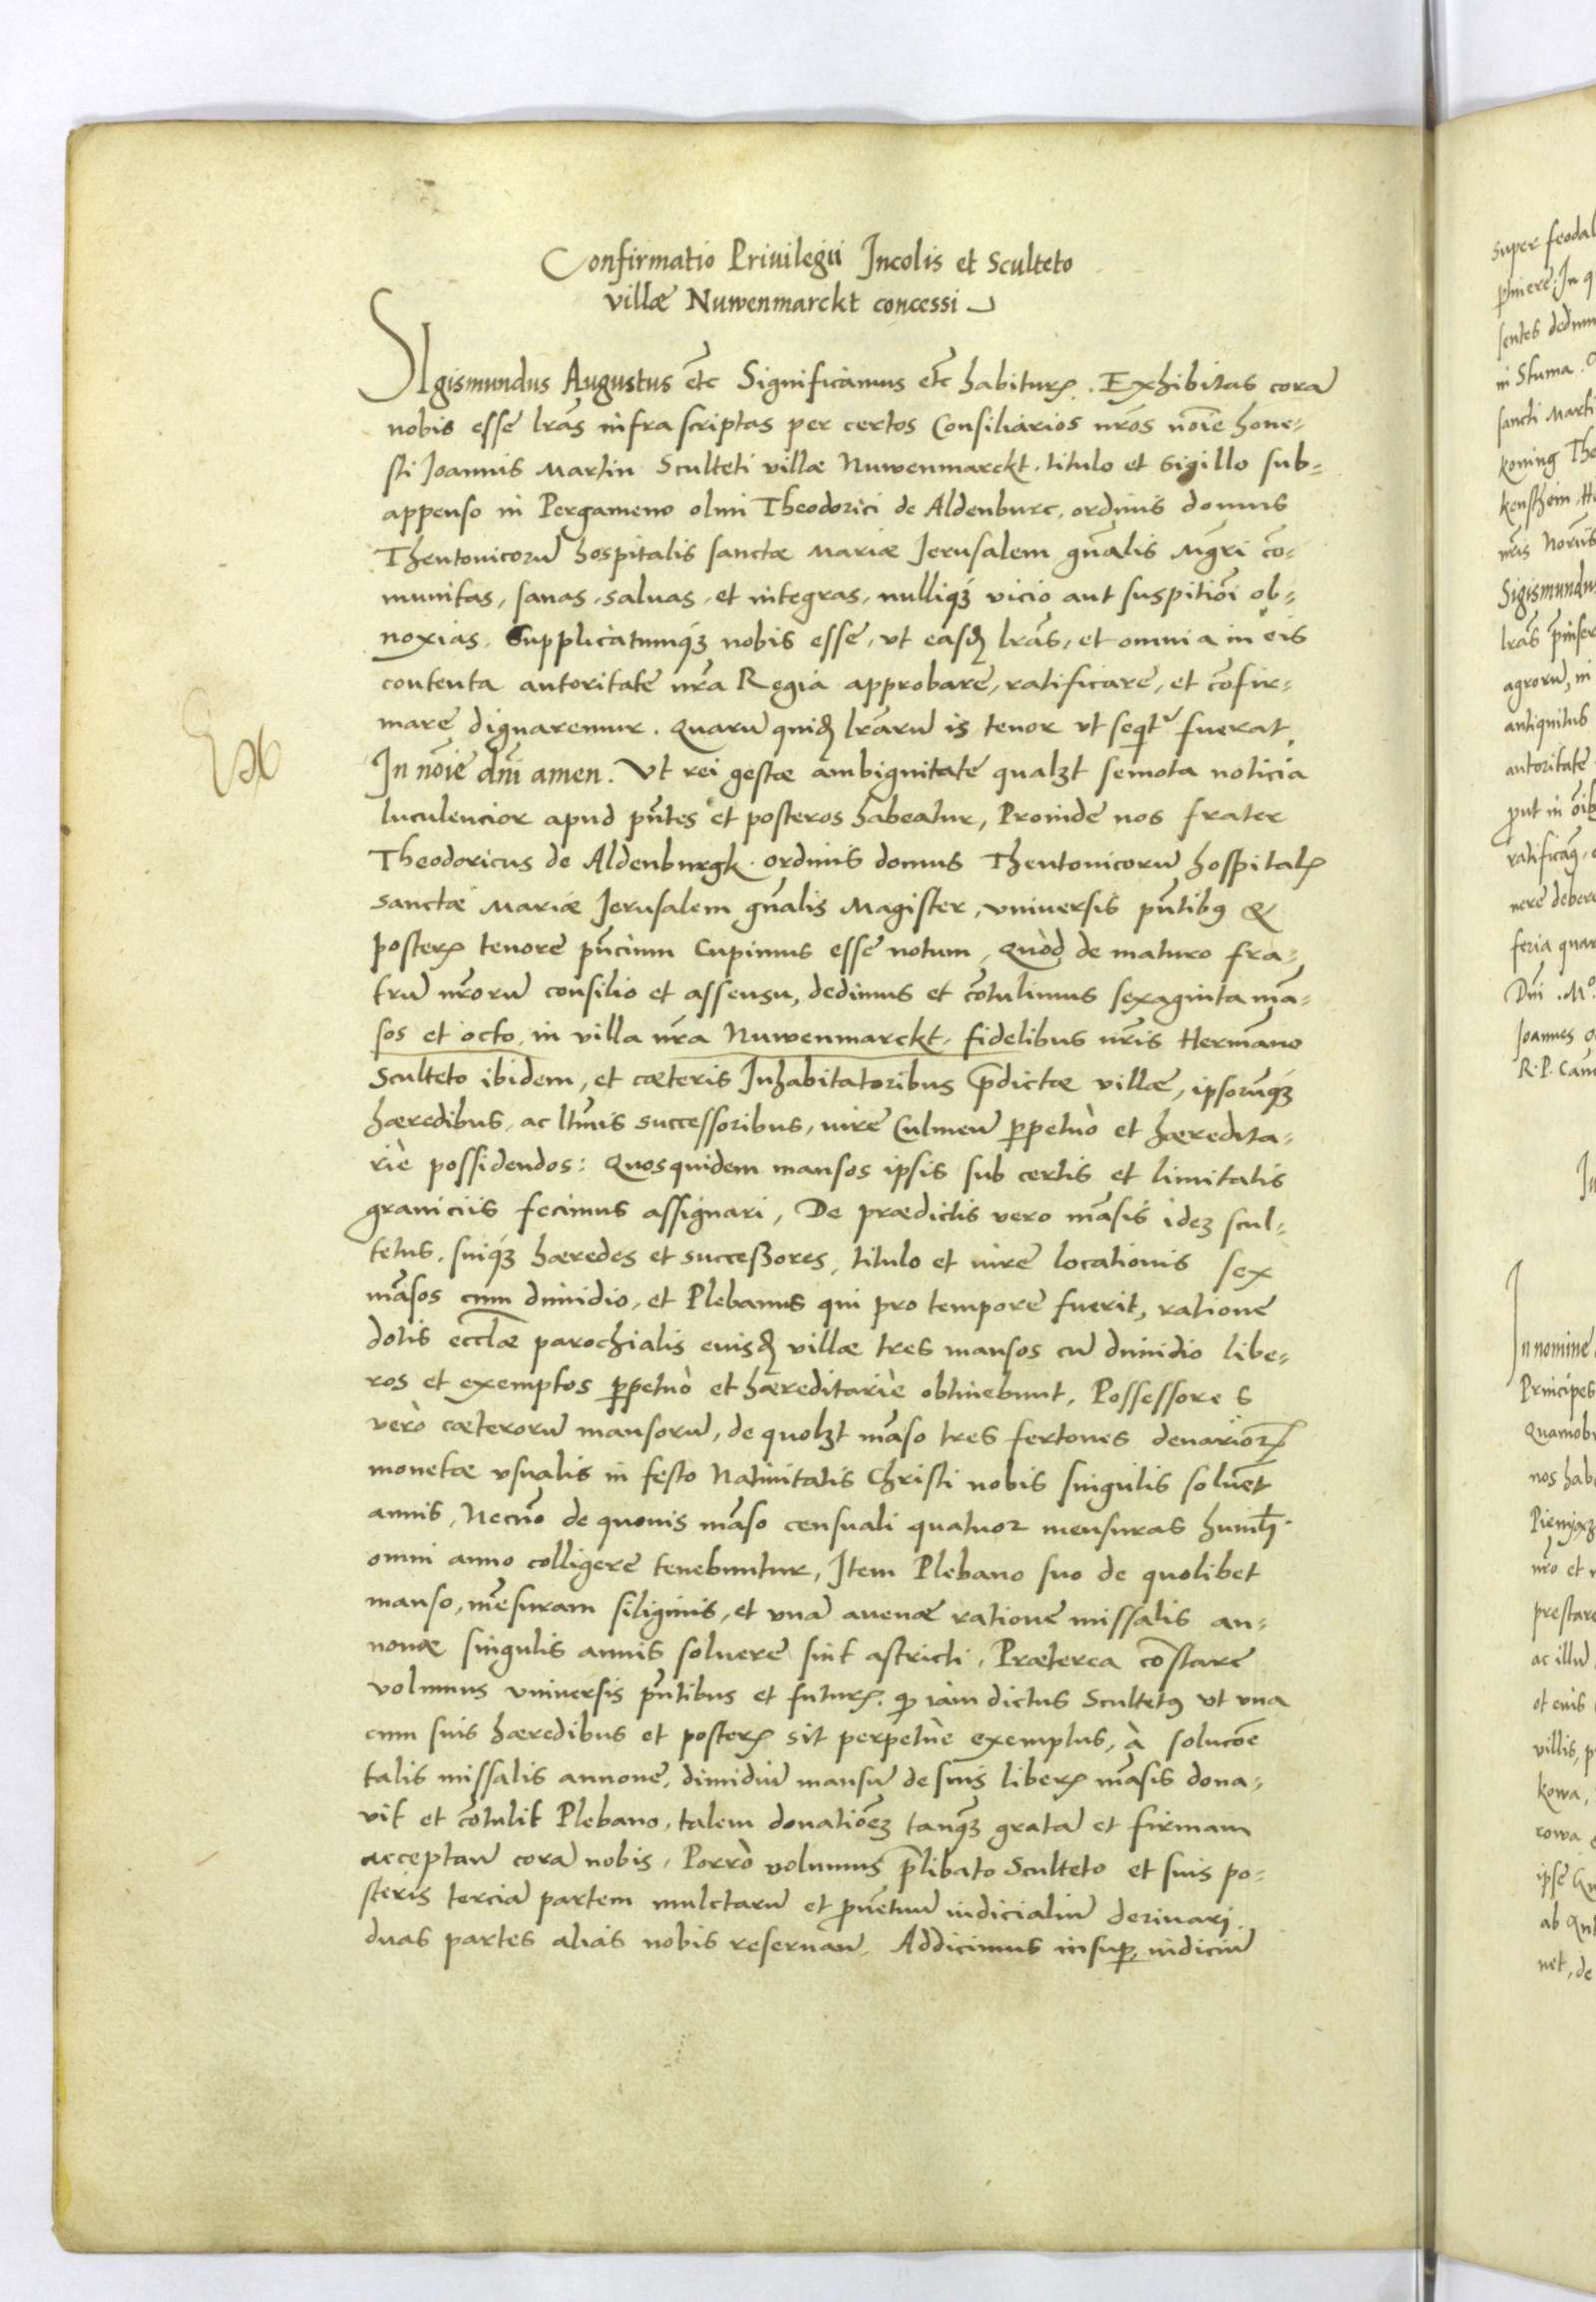 Confirmatio Priuilegii Incolis et Sculteto
villæ Nuwenmarckt concessi
Sigismundus Augustus etc̃ Significamus etc̃ habiturꝝ. Exhibitas corā
nobis esse lrãs infra scriptas per certos Consiliarios nrõs noĩe hone-
sti Joannis Martin Sculteti villæ Nuwenmarckt, titulo et sigillo sub-
appenso in Pergameno olim Theodorici de Aldenburc, ordinis domus
Theutonicorũ hospitalis sanctæ Mariæ Jerusalem gñalis Mgri cõ-
munitas, sanas, saluas, et integras, nulliqꝫ vicio aut suspitiõi ob-
noxias. Supplicatumqꝫ nobis esse, vt easdꝫ lrãs, et omnia in eis
contenta autoritate nrã Regia approbare, ratificare, et cõfir-
mare dignaremur. Quarũ quidꝫ lrãrũ is tenor vt seqtr̃ fuerat.
Ex
In noĩe dnĩ amen. Vt rei gestæ ambiguitate qualꝫt semota noticia
luculencior apud pñtes et posteros habeatur, Proinde nos frater
Theodoricus de Aldenburgk ordinis domus Theutonicorũ hospitalꝭ
sanctæ Mariæ Jerusalem gñalis Magister, vniuersis pñtibꝰ &
posterꝭ tenore pñcium Cupimus esse notum, Quòd de maturo fra-
trũ nrõrũ consilio et assensu, dedimus et cõtulimus sexaginta mã-
sos et octo, in villa nrã Nuwenmarckt, fidelibus nrĩs Hermãno
Sculteto ibidem, et cæteris Inhabitatoribus p̃dictæ villæ, ipsorũqꝫ
hæredibus, ac ltĩmis successoribus, iure Culmeñ ꝑpetuò et hæredita-
riè possidendos: Quosquidem mansos ipsis sub certis et limitatis
graniciis fecimus assignari, De prædictis vero mãsis ideꝫ scul-
tetus, suiqꝫ hæredes et successores, titulo et iure locationis sex
mãsos cum dimidio, et Plebanus qui pro tempore fuerit, ratione
dotis ecclæ̃ parochialis eiusdꝫ villæ tres mansos cũ dimidio libe-
ros et exemptos ꝑpetuò et hæreditariè obtinebunt. Possessores
verò cæterorũ mansorũ, de quolꝫt mãso tres fertones denariorꝝ
monetæ vsualis in festo Natiuitatis Christi nobis singulis soluẽt
annis, Necnõ de quouis mãso censuali quatuor mensuras humłi
omni anno colligere tenebuntur, Item Plebano suo de quolibet
manso, mẽsuram siliginis, et vnã auenæ ratione missalis an-
nonæ singulis annis soluere sint astricti, Præterea cõstare
volumus vniuersis pñtibus et futurꝭ. ꝙ iam dictus Scultetꝰ vt vna
cum suis hæredibus et posterꝭ sit perpetuè exemptus, à solucõe
talis missalis annone, dimidiũ mansũ de suis liberꝭ mãsis dona-
vit et cõtulit Plebano, talem donatiõeꝫ tanqꝫ gratã et firmam
acceptañ corã nobis, Porrò volumus p̃libato Sculteto et suis po-
steris terciã partem mulctarũ et ꝓuẽtuũ iudicialiũ deriuari.
duas partes alias nobis reseruañ. Addicimus insuꝑ, iudiciũ